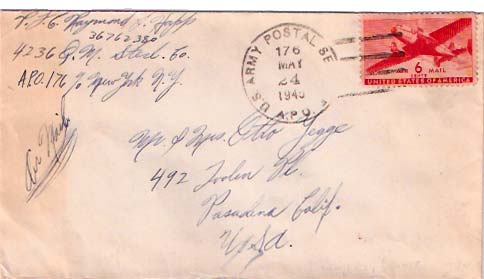 P.F.C. Raymond L. Japp
36762380
4236 Q.M. Steel. Co.
A.P.O. 176 % New York N.Y.
Air Mail
U.S. ARMY POSTAL SE
176
MAY
24
1945
A.P.O.
AIR MAIL
6
CENTS
UNITED STATES OF AMERICA
Mr. & Mrs. Otto Jegge
492 Pl.
Pasadena Calif.
U.S.A.